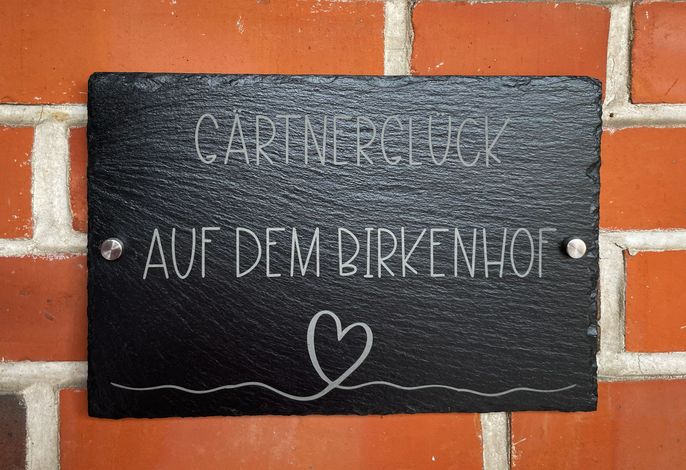 GÄRTNERGLÜCK
AUF DEM BIRKENHOF